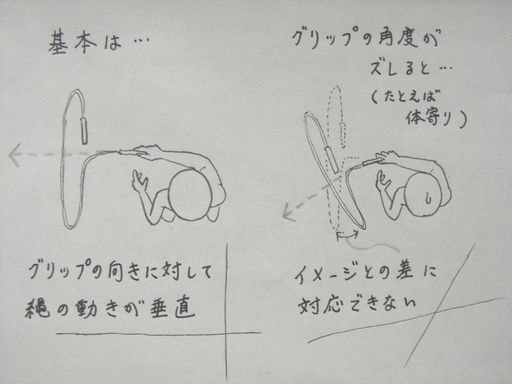 基本は…
グリップの向きに対して
縄の動きが垂直
グリップの角度が
ズレると…
(たとえば
体寄り)
イメージとの差に
対応できない